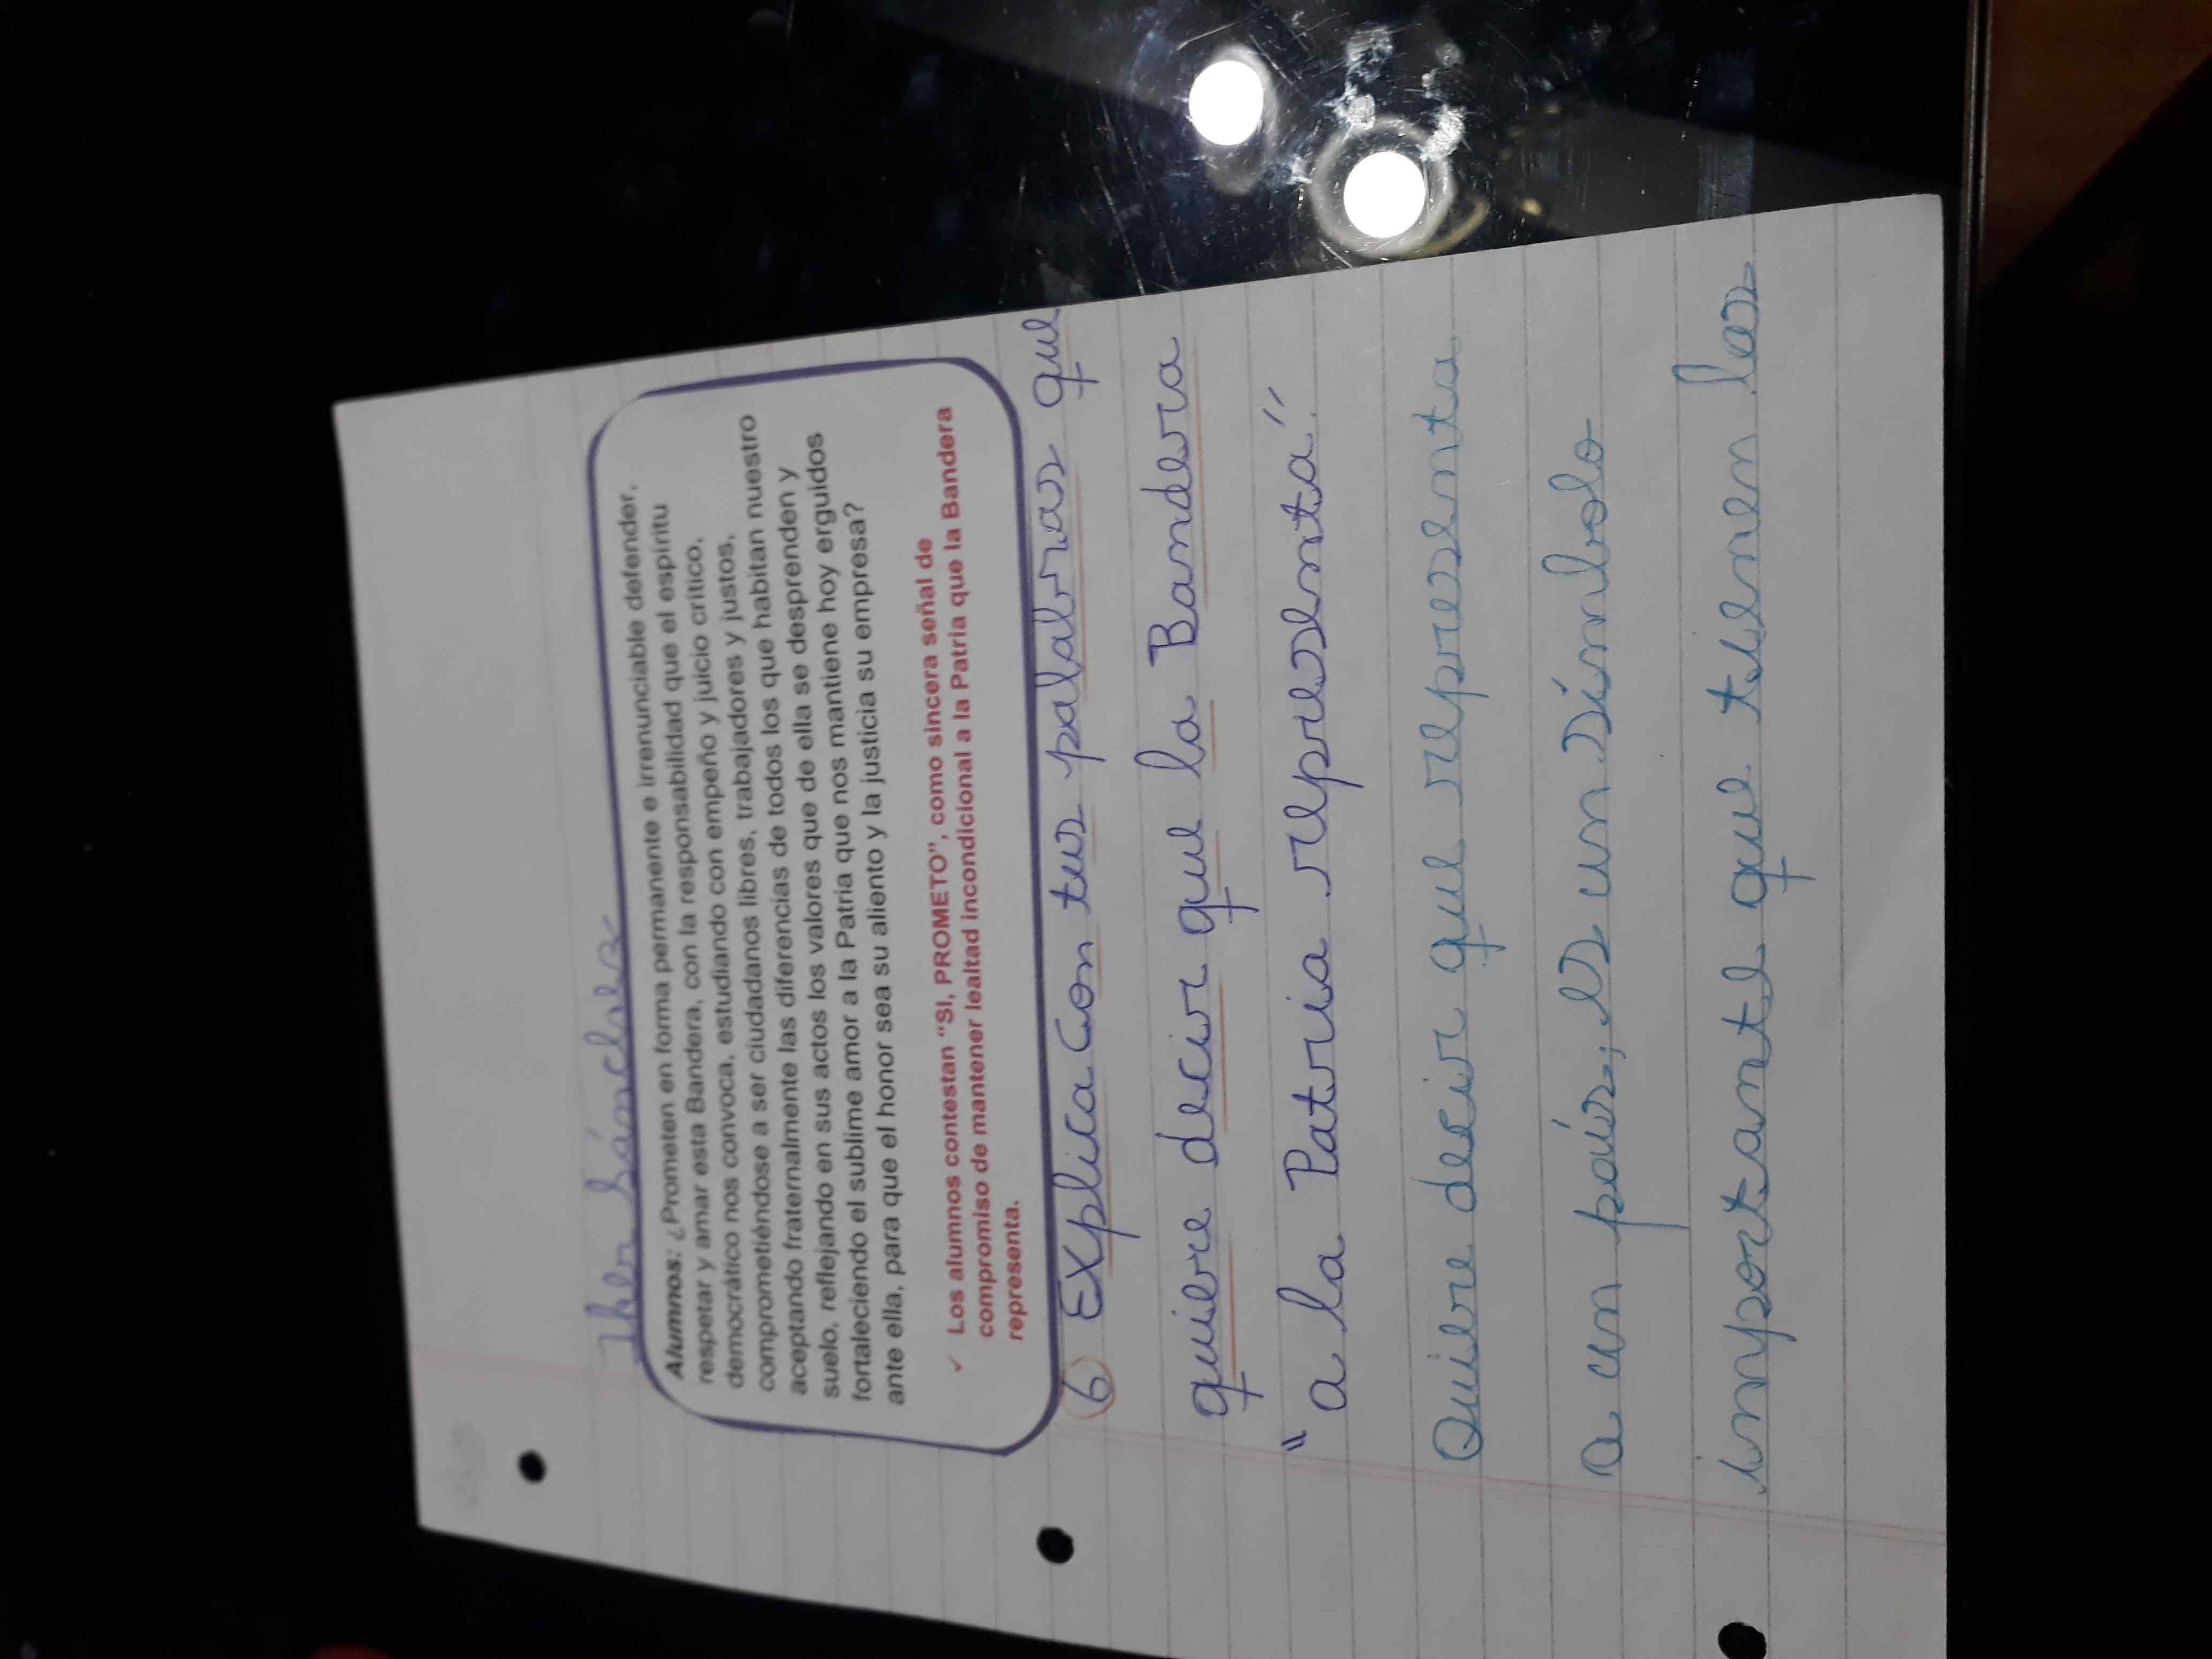 Sánchez
Alumnos: ¿Prometen en forma permanente e irrenunciable defender,
respetar y amar esta Bandera, con la responsabilidad que el espíritu
democrático nos convoca, estudiando con empeño y juicio crítico,
comprometiéndose a ser ciudadanos libres, trabajadores y justos,
aceptando fraternalmente las diferencias de todos los que habitan nuestro
suelo, reflejando en sus actos los valores que de ella se desprenden y
fortaleciendo el sublime amor a la Patria que nos mantiene hoy erguidos
ante ella, para que el honor sea su aliento y la justicia su empresa?
✓ Los alumnos contestan "SI, PROMETO", como sincera señal de
compromiso de mantener lealtad incondicional a la Patria que la Bandera
representa.
6 Explica con tus palabras que
quiere decir que la Bandera
"a la Patria representa".
Quiere decir que representa
a un país, es un símbolo
importante que tienen los